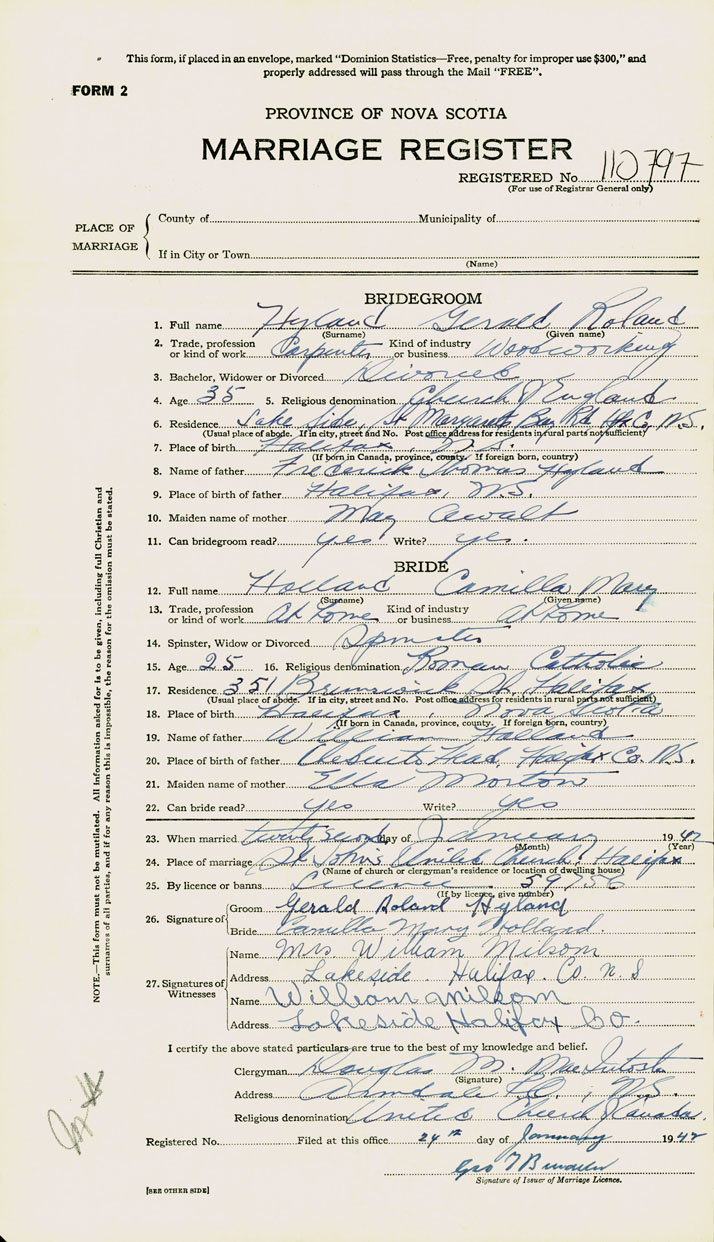 This form, if placed in an envelope, marked "Dominion Statistics—Free, penalty for improper use $300," and
properly addressed will pass through the Mail "FREE".
FORM 2
PROVINCE OF NOVA SCOTIA
MARRIAGE REGISTER
REGISTERED No. 110797
(For use of Registrar General only)
PLACE OF MARRIAGE
County of Municipality of
If in City or Town
(Name)
BRIDEGROOM
1. Full name Hyland Gerald Roland
(Surname) (Given name)
2. Trade, profession or kind of work Carpenter Kind of industry or business Woodworking
3. Bachelor, Widower or Divorced Divorced
4. Age 35 5. Religious denomination Church of England
6. Residence Lake Side, St Margarets Bay Rd. Hfx Co. N.S.
(Usual place of abode. If in city, street and No. Post office address for residents in rural parts not sufficient)
7. Place of birth Halifax, N.S.
(If born in Canada, province, county. If foreign born, country)
8. Name of father Frederick Thomas Hyland
9. Place of birth of father Halifax, N.S.
10. Maiden name of mother May Awalt
11. Can bridegroom read? yes Write? yes.
BRIDE
12. Full name Holland Camilla Mary
(Surname) (Given name)
13. Trade, profession or kind of work At Home Kind of industry or business At Home
14. Spinster, Widow or Divorced Spinster
15. Age 25 16. Religious denomination Roman Catholic
17. Residence 351 Brunswick St. Halifax
(Usual place of abode. If in city, street and No. Post office address for residents in rural parts not sufficient)
18. Place of birth Halifax Nova Scotia
(If born in Canada, province, county. If foreign born, country)
19. Name of father William Holland
20. Place of birth of father Chebucto Head, Halifax Co. N.S.
21. Maiden name of mother Ella Morton
22. Can bride read? yes Write? yes
23. When married twenty second day of January 1942
(Month) (Year)
24. Place of marriage St. John's United Church, Halifax
(Name of church or clergyman's residence or location of dwelling house)
25. By licence or banns Licence 59756
(If by licence, give number)
26. Signature of
Groom Gerald Roland Hyland
Bride Camilla Mary Holland.
27. Signatures of Witnesses
Name Mrs William Milsom
Address Lakeside. Halifax. Co. N.S
Name William Milsom
Address Lakeside Halifax Co.
I certify the above stated particulars are true to the best of my knowledge and belief.
Clergyman Douglas M. MacIntosh
(Signature)
Address Armdale P.O., N.S.
Religious denomination United Church of Canada.
Registered No. Filed at this office 24th day of January 1942
Geo
Signature of Issuer of Marriage Licence.
[SEE OTHER SIDE]
NOTE.—This form must not be mutilated. All information asked for is to be given, including full Christian and
surnames of all parties, and if for any reason this is impossible, the reason for the omission must be stated.